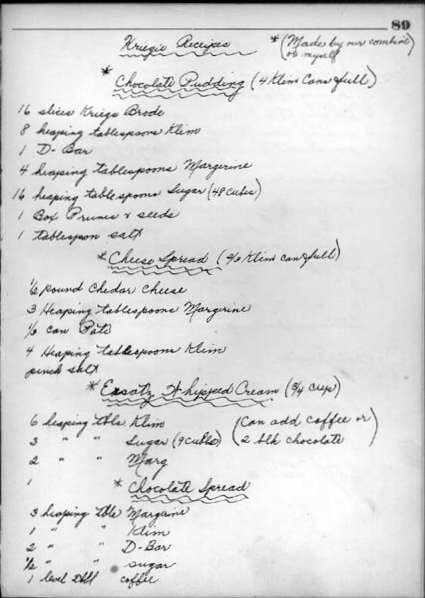 89
Kriegie Recipes *(Made by our combine
or myself)
* Chocolate Pudding (4 Klim Cans full)
16 slices Kriegs Brode
8 heaping tablespoons Klim
1 D-Bar
4 heaping tablespoons Margerine
16 heaping tablespoons Sugar (48 Cubes)
1 Box Prunes & seeds
1 tablespoon salt
* Cheese Spread ( Klim can full)
pound Chedar Cheese
3 Heaping tablespoons Margerine
can Pate
4 Heaping tablespoons Klim
pinch salt
* Ersatz Whipped Cream (3/4 cup)
6 heaping tble Klim (Can add coffee or)
3 " " Sugar (9 Cubes) 2 blk chocolate
2 " " Marg
1 * Chocolate Spread
3 heaping tble Margerine
1 " " Klim
2 " " D-Bar
1/2 " " sugar
1 level coffee